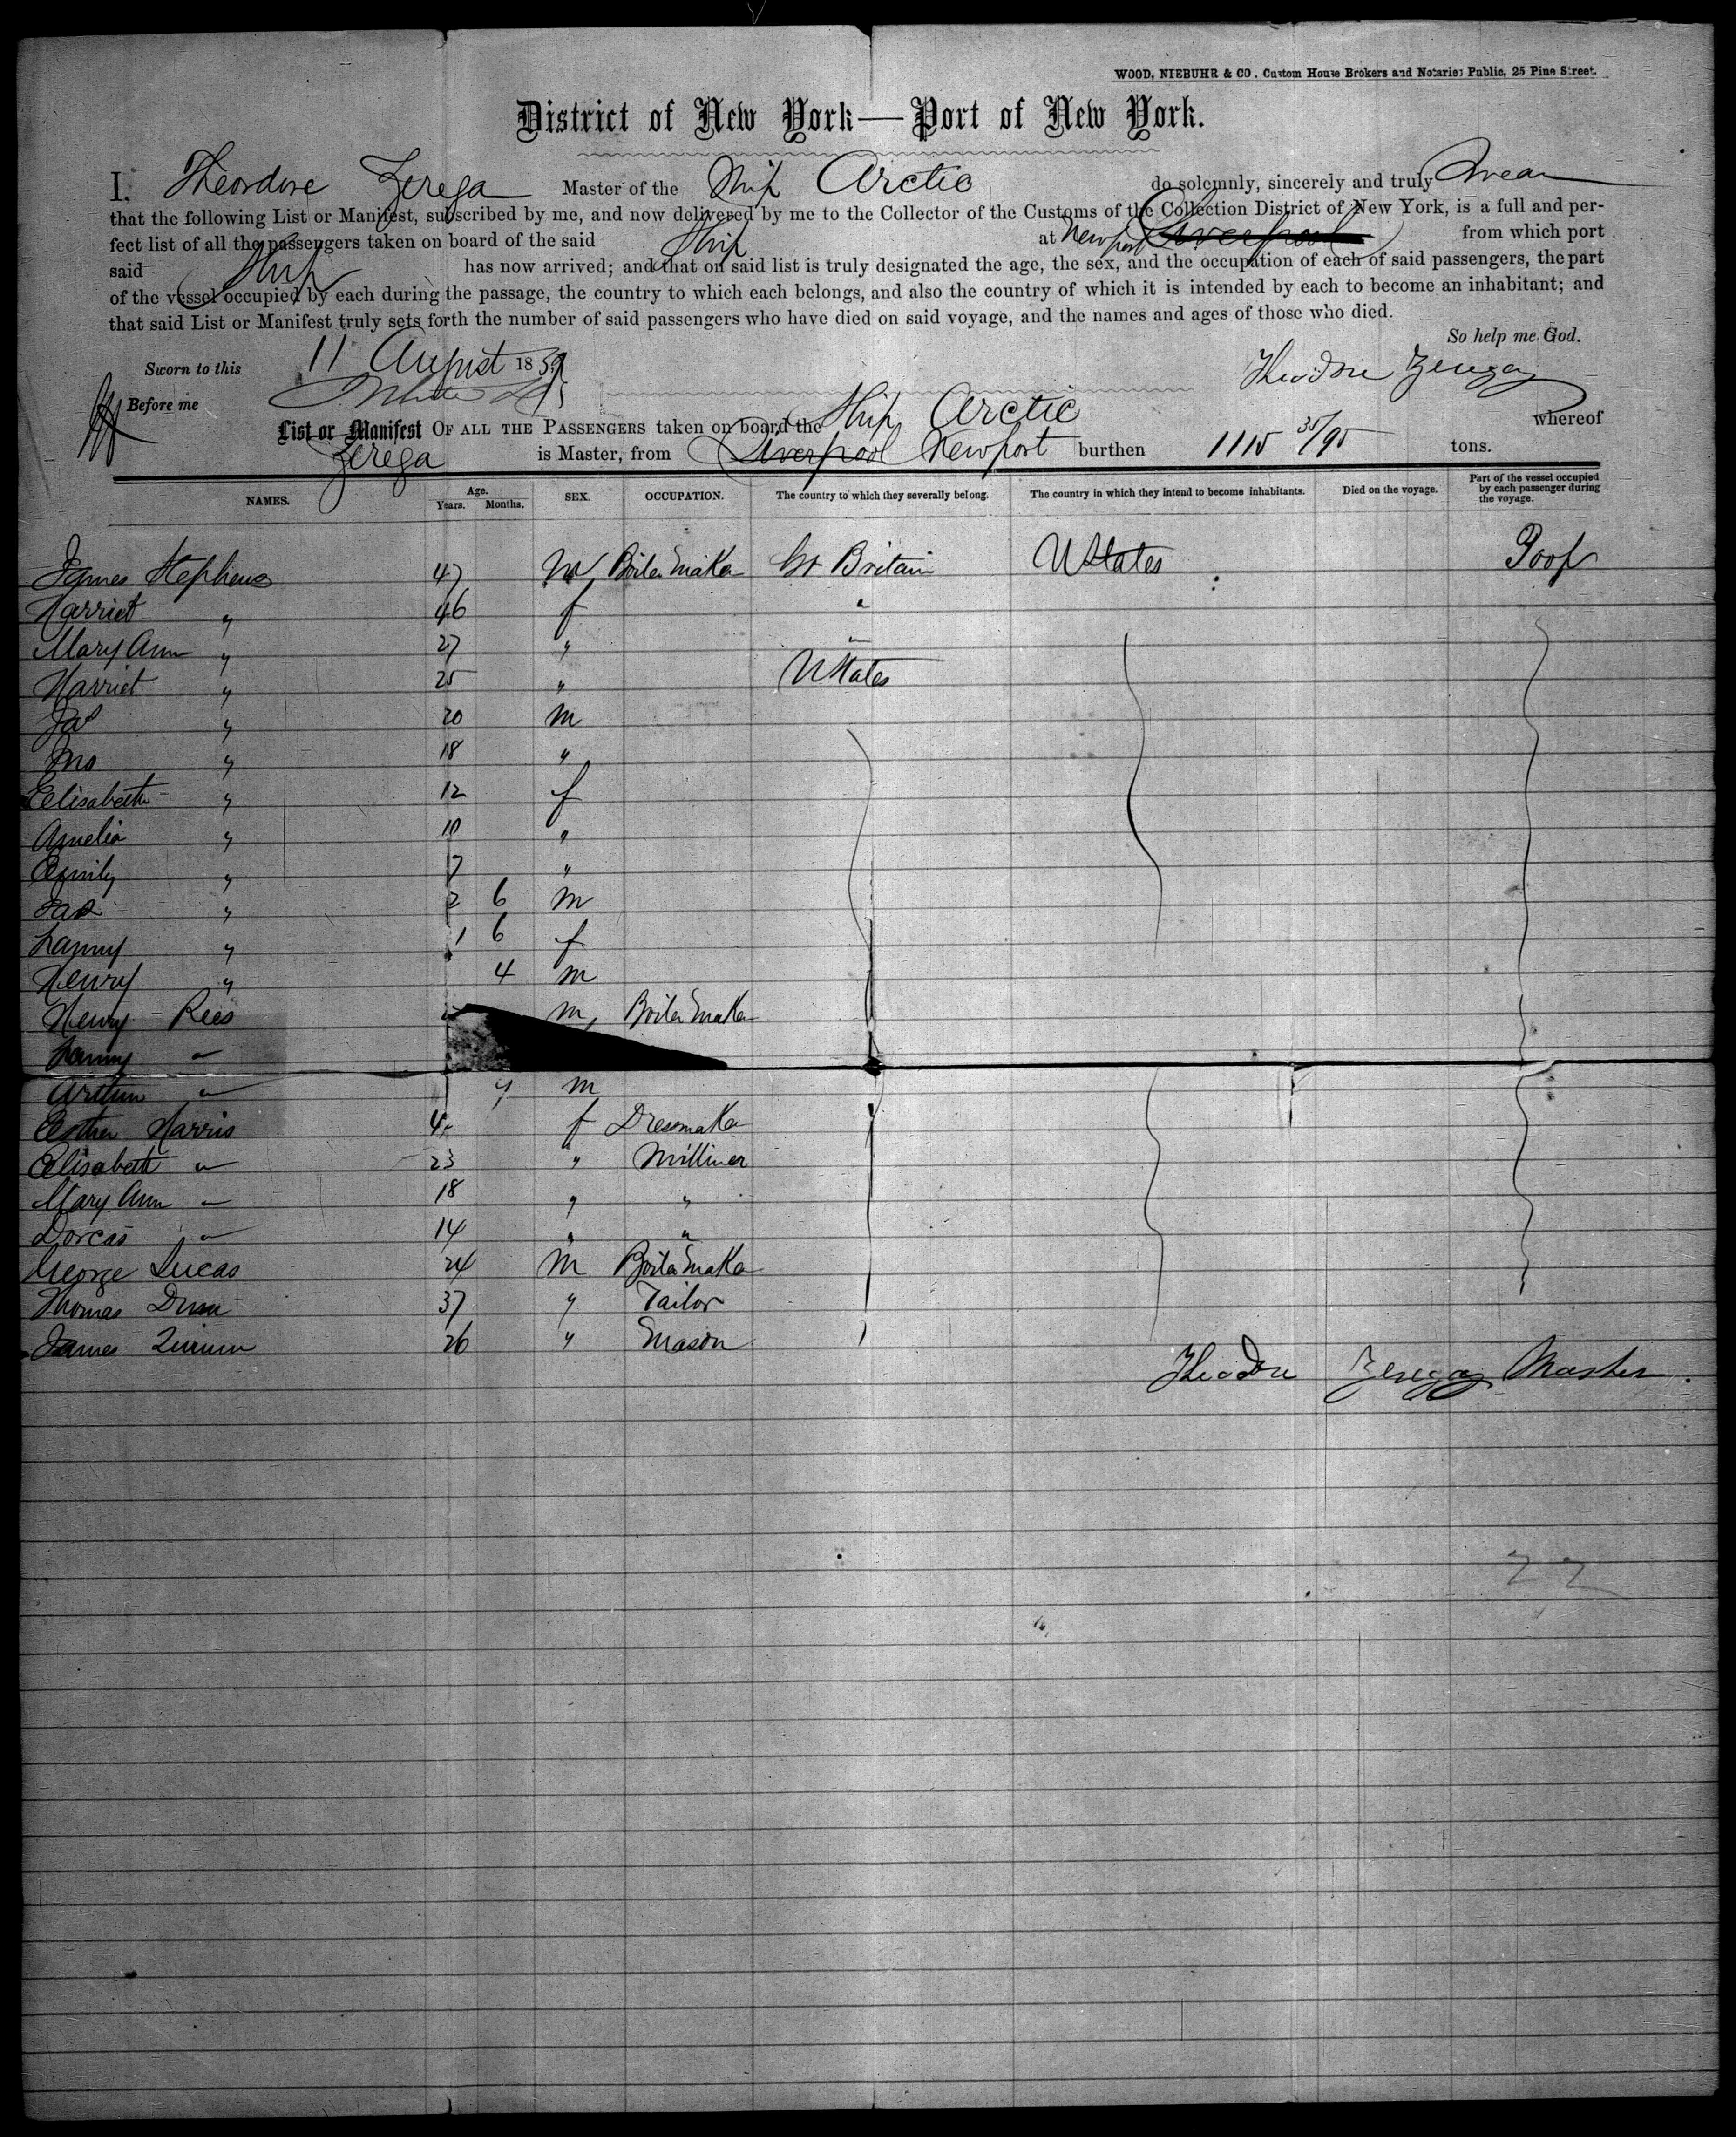 WOOD, NIEBUHR & CO. Custom House Brokers and Notaries Public, 25 Pine Street.
District of New York—Port of New York.
I, Theordore Zerega Master of the Ship Arctic do solemnly, sincerely and truly Swear
that the following List or Manifest, subscribed by me, and now delivered by me to the Collector of the Customs of the Collection District of New York, is a full and per-
fect list of all the passengers taken on board of the said Ship at Newport Liverpool from which port
said Ship has now arrived; and that on said list is truly designated the age, the sex, and the occupation of each of said passengers, the part
of the vessel occupied by each during the passage, the country to which each belongs, and also the country of which it is intended by each to become an inhabitant; and
that said List or Manifest truly sets forth the number of said passengers who have died on said voyage, and the names and ages of those who died.
So help me God.
Sworn to this 11 August 1859 Theodore Zerega
Before me
List or Manifest OF ALL THE PASSENGERS taken on board the Ship Arctic whereof
Zerega is Master, from Liverpool Newport burthen 1115 35/95 tons.
NAMES. Age. Years. Months. SEX. OCCUPATION. The country to which they severally belong. The country in which they intend to become inhabitants. Died on the voyage. Part of the vessel occupied by each passenger during the voyage.
James Stephens 47 m Boiler maker Gt Britain UStates Poop
Harriet " 46 f "
Mary Ann " 27 " "
Harriet " 25 " UStates
Jas " 20 m
Jno " 18 "
Elisabeth " 12 f
Amelia " 10 "
Emily " 7 "
Jas " 2 6 m
Fanny " 1 6 f
Henry " 4 m
Henry Rees m Boiler maker
Fanny "
Arthur " m
Esther Harris f Dressmaker
Elisabeth " 23 " Milliner
Mary Ann " 18 " "
Dorcas " 14 " "
George Lucas 24 m Boiler maker
Thomas Dunn 37 " Tailor
James Quinn 26 " Mason
Theodore Zerega Master
22